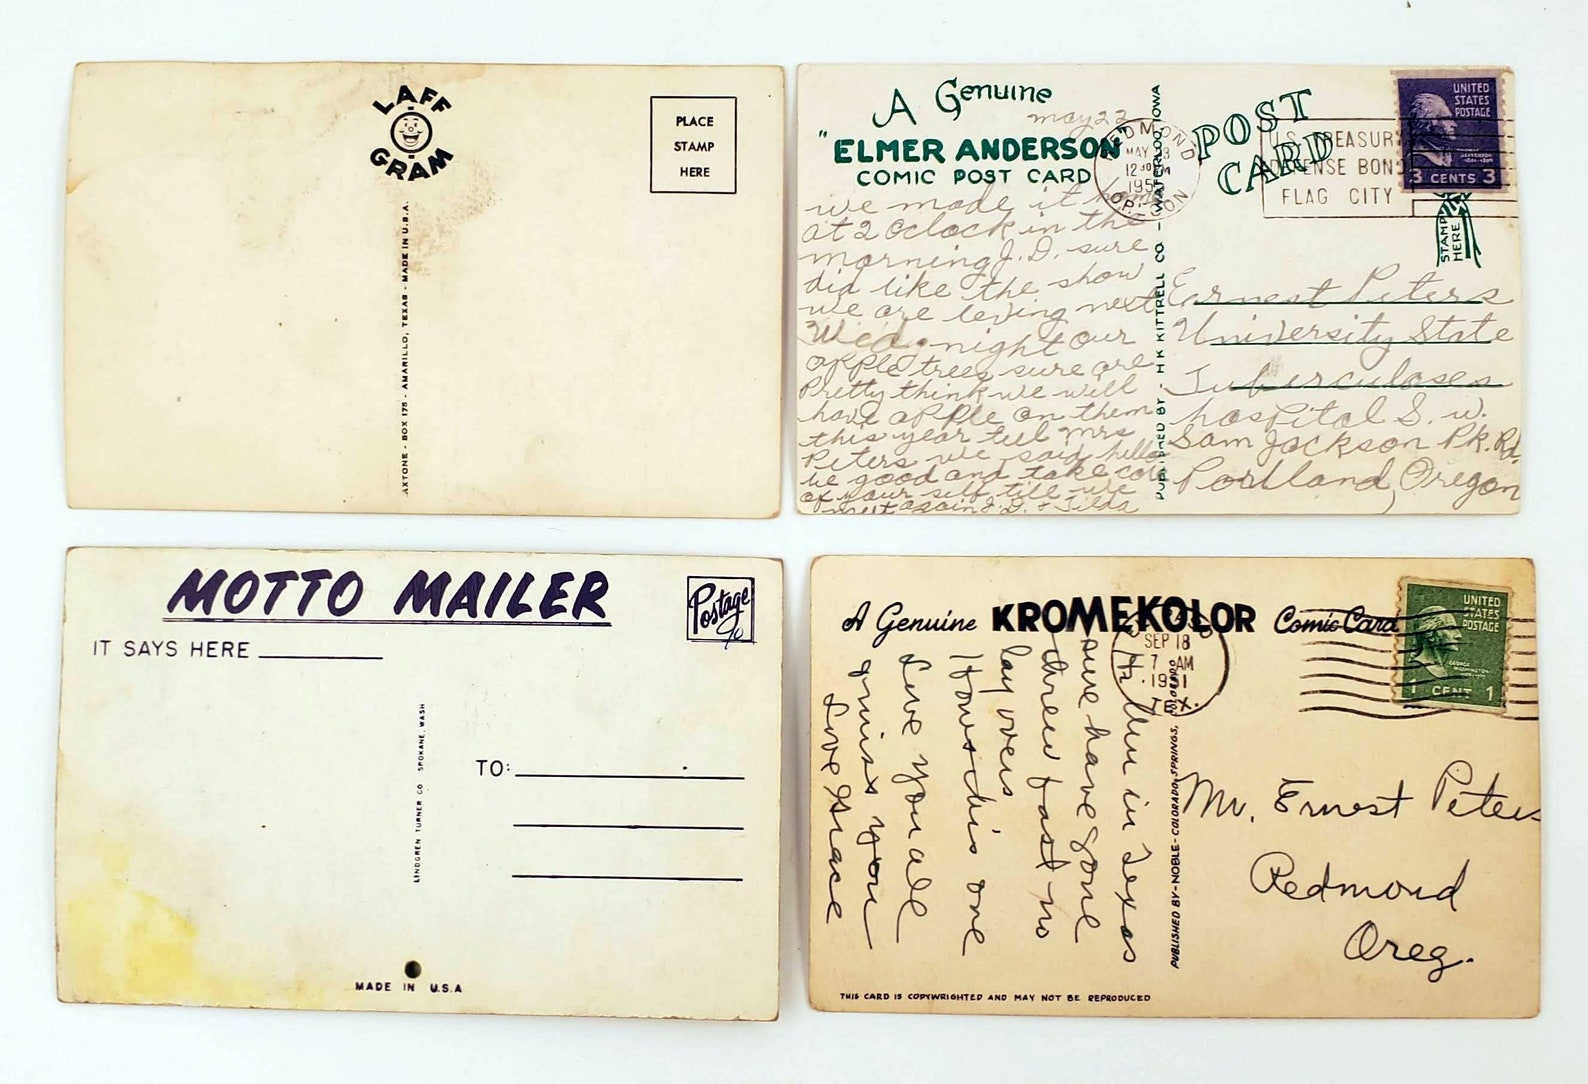 LAFF
GRAM
PLACE
STAMP
HERE
AXTONE - BOX 175 - AMARILLO, TEXAS - MADE IN U.S.A.
A Genuine
"ELMER ANDERSON"
COMIC POST CARD
POST
CARD
REDMOND
MAY 23
1230 PM
195
OREGON
U.S. TREASURY
DEFENSE BOND
FLAG CITY
UNITED
STATES
POSTAGE
JEFFERSON
3 CENTS 3
STAMP
HERE
PUBLISHED BY - H K KITTRELL CO - WATERLOO, IOWA
may 22
we made it home
at 2 oclock in the
morning J.D. sure
did like the show
we are leving next
Wed. night our
apple trees sure are
Pretty think we will
have apple on them
this year tell Mrs
Peters we said hello
be good and take care
of your self till we
meet again J.D. + Tilda
Earnest Peters
University State
Tuberculoses
hospital S. W.
Sam Jackson Pk. Rd.
Portland, Oregon
MOTTO MAILER
Postage
IT SAYS HERE
LINDGREN TURNER CO SPOKANE, WASH
TO:
MADE IN U.S.A
A Genuine KROMEKOLOR Comic Card
SEP 18
7 AM
1951
TEX.
UNITED
STATES
POSTAGE
GEORGE
WASHINGTON
1 CENT 1
PUBLISHED BY - NOBLE - COLORADO SPRINGS, COLORADO
in Texas
sure have gone
threw fast no
lay overs
Hows this one
Love you all
& miss you
Love Grace
Mr. Ernest Peters
Redmond
Oreg.
THIS CARD IS COPYWRIGHTED AND MAY NOT BE REPRODUCED